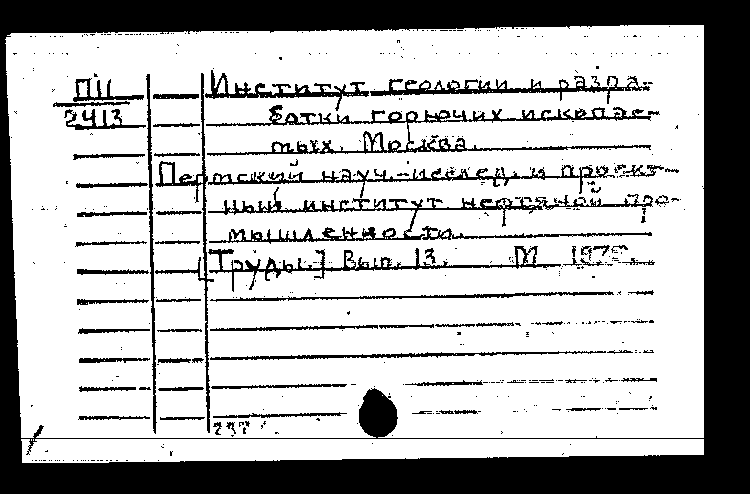 П11 Институт геологии и разра-
2413 ботки горючих ископае-
мых. Москва.
Пермский науч.-исслед. и проект-
ный институт нефтяной про-
мышленности.
[Труды.] Вып. 13. М
237